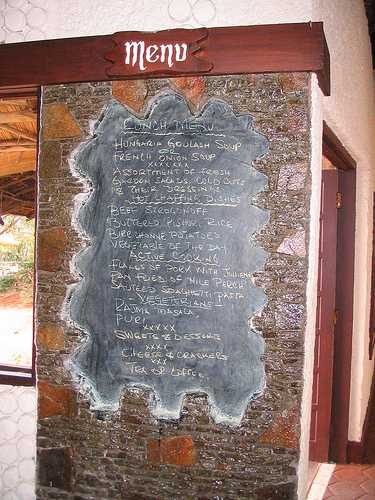 Menu
LUNCH MENU
HUNGARIA GOULASH SOUP
OR
FRENCH ONION SOUP
XXXXXXX
ASSORTMENT OF FRESH
GARDEN SALADS, COLD CUTS
& THEIR DRESSINGS
HOT CHAFFING DISHES
BEEF STROGONOFF
BUTTERED PISHORI RICE
DUCHESSE POTATOES
VEGETABLE OF THE DAY
ACTIVE COOKING
FLAKES OF PORK WITH JULIENNE
PAN FRIED OF NILE PERCH
SAUTEED SPAGHETTI PASTA
- VEGETERIANS -
DAUMA MASALA
PURI
XXXXX
SWEETS & DESSERTS
XXXX
CHEESE & CRACKERS
XXX
TEA OR COFFEE